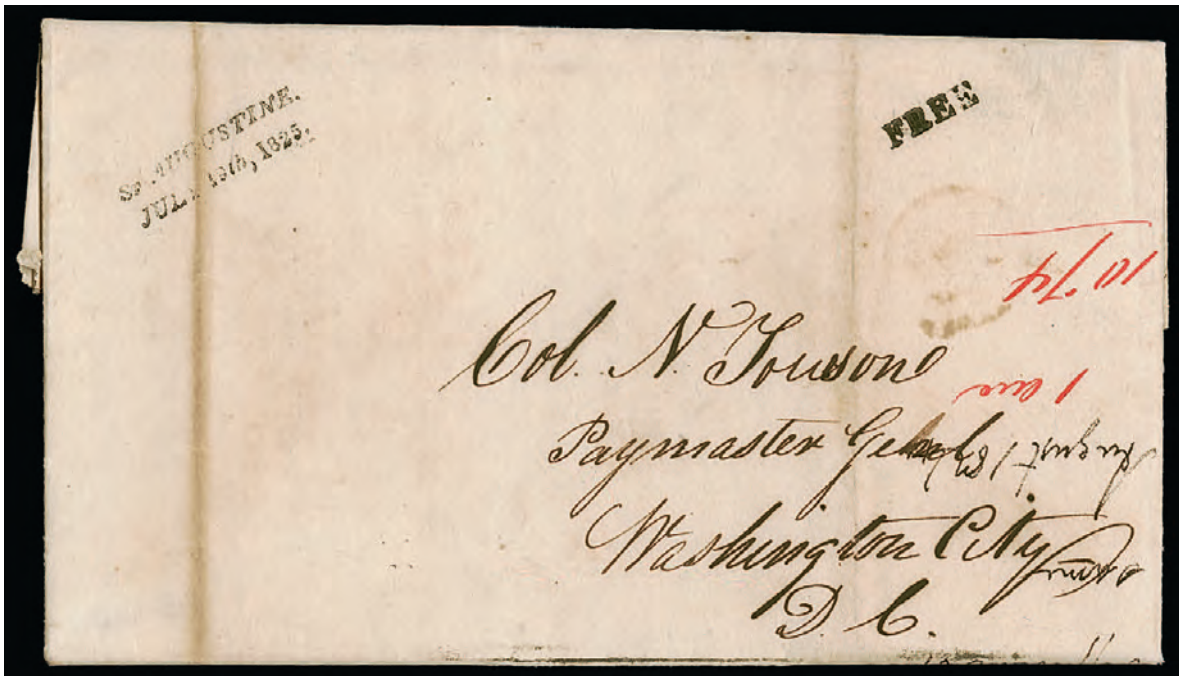 ST. AUGUSTINE.
JULY 19th, 1825.
FREE
10 74
Col. N. Towson
Paymaster Genl
Washington City
D. C.
August 1